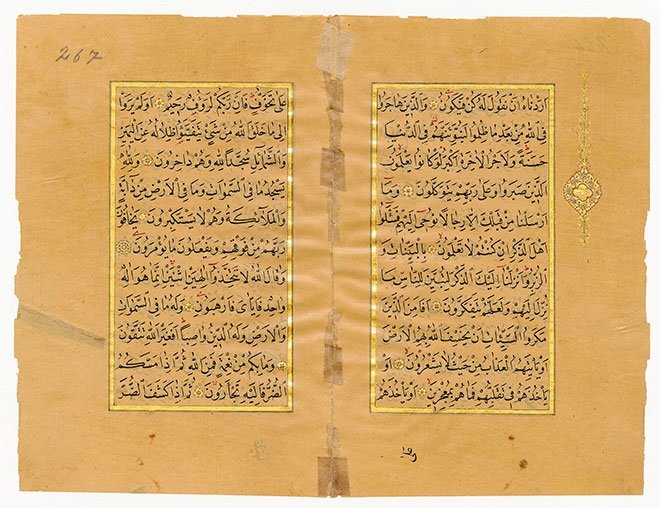 267
اَرَدْنَاهُ اَنْ نَقُولَ لَهُ كُنْ فَيَكُونُ وَالَّذِينَ هَاجَرُوا
فِي اللهِ مِنْ بَعْدِ مَا ظُلِمُوا لَنُبَوِّئَنَّهُمْ فِي الدُّنْيَا
حَسَنَةً وَلَاَجْرُ الْاٰخِرَةِ اَكْبَرُ لَوْ كَانُوا يَعْلَمُونَ
الَّذِينَ صَبَرُوا وَعَلٰى رَبِّهِمْ يَتَوَكَّلُونَ وَمَا
اَرْسَلْنَا مِنْ قَبْلِكَ اِلَّا رِجَالًا نُوحِي اِلَيْهِمْ فَسْئَلُوا
اَهْلَ الذِّكْرِ اِنْ كُنْتُمْ لَا تَعْلَمُونَ بِالْبَيِّنَاتِ وَ
الزُّبُرِ وَاَنْزَلْنَا اِلَيْكَ الذِّكْرَ لِتُبَيِّنَ لِلنَّاسِ مَا
نُزِّلَ اِلَيْهِمْ وَلَعَلَّهُمْ يَتَفَكَّرُونَ اَفَاَمِنَ الَّذِينَ
مَكَرُوا السَّيِّئَاتِ اَنْ يَخْسِفَ اللهُ بِهِمُ الْاَرْضَ
اَوْ يَاْتِيَهُمُ الْعَذَابُ مِنْ حَيْثُ لَا يَشْعُرُونَ اَوْ
يَاْخُذَهُمْ فِي تَقَلُّبِهِمْ فَمَا هُمْ بِمُعْجِزِينَ اَوْ يَاْخُذَهُمْ
عَلٰى تَخَوُّفٍ فَاِنَّ رَبَّكُمْ لَرَؤُفٌ رَحِيمٌ اَوَلَمْ يَرَوْا
اِلٰى مَا خَلَقَ اللهُ مِنْ شَيْءٍ يَتَفَيَّؤُا ظِلَالُهُ عَنِ الْيَمِينِ
وَالشَّمَائِلِ سُجَّدًا لِلّٰهِ وَهُمْ دَاخِرُونَ وَلِلّٰهِ
يَسْجُدُ مَا فِي السَّمٰوَاتِ وَمَا فِي الْاَرْضِ مِنْ دَابَّةٍ
وَالْمَلَائِكَةُ وَهُمْ لَا يَسْتَكْبِرُونَ يَخَافُونَ
رَبَّهُمْ مِنْ فَوْقِهِمْ وَيَفْعَلُونَ مَا يُؤْمَرُونَ
وَقَالَ اللهُ لَا تَتَّخِذُوا اِلٰهَيْنِ اثْنَيْنِ اِنَّمَا هُوَ اِلٰهٌ
وَاحِدٌ فَاِيَّايَ فَارْهَبُونِ وَلَهُ مَا فِي السَّمٰوَاتِ
وَالْاَرْضِ وَلَهُ الدِّينُ وَاصِبًا اَفَغَيْرَ اللهِ تَتَّقُونَ
وَمَا بِكُمْ مِنْ نِعْمَةٍ فَمِنَ اللهِ ثُمَّ اِذَا مَسَّكُمُ
الضُّرُّ فَاِلَيْهِ تَجْئَرُونَ ثُمَّ اِذَا كَشَفَ الضُّرَّ